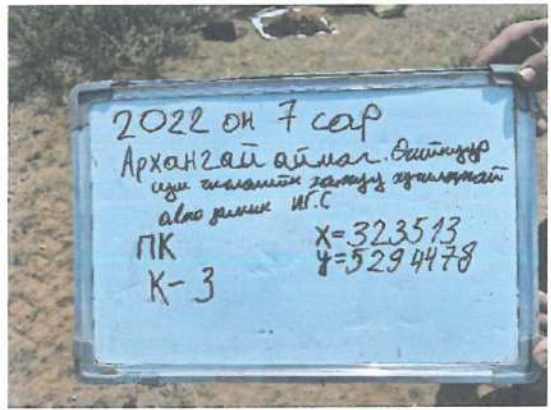 2022 он 7 сар
Архангай аймаг. Өгийнуур
хатуу хучилттай
авто замын И.Г.С
ПК
K-3
x=323513
y=5294478